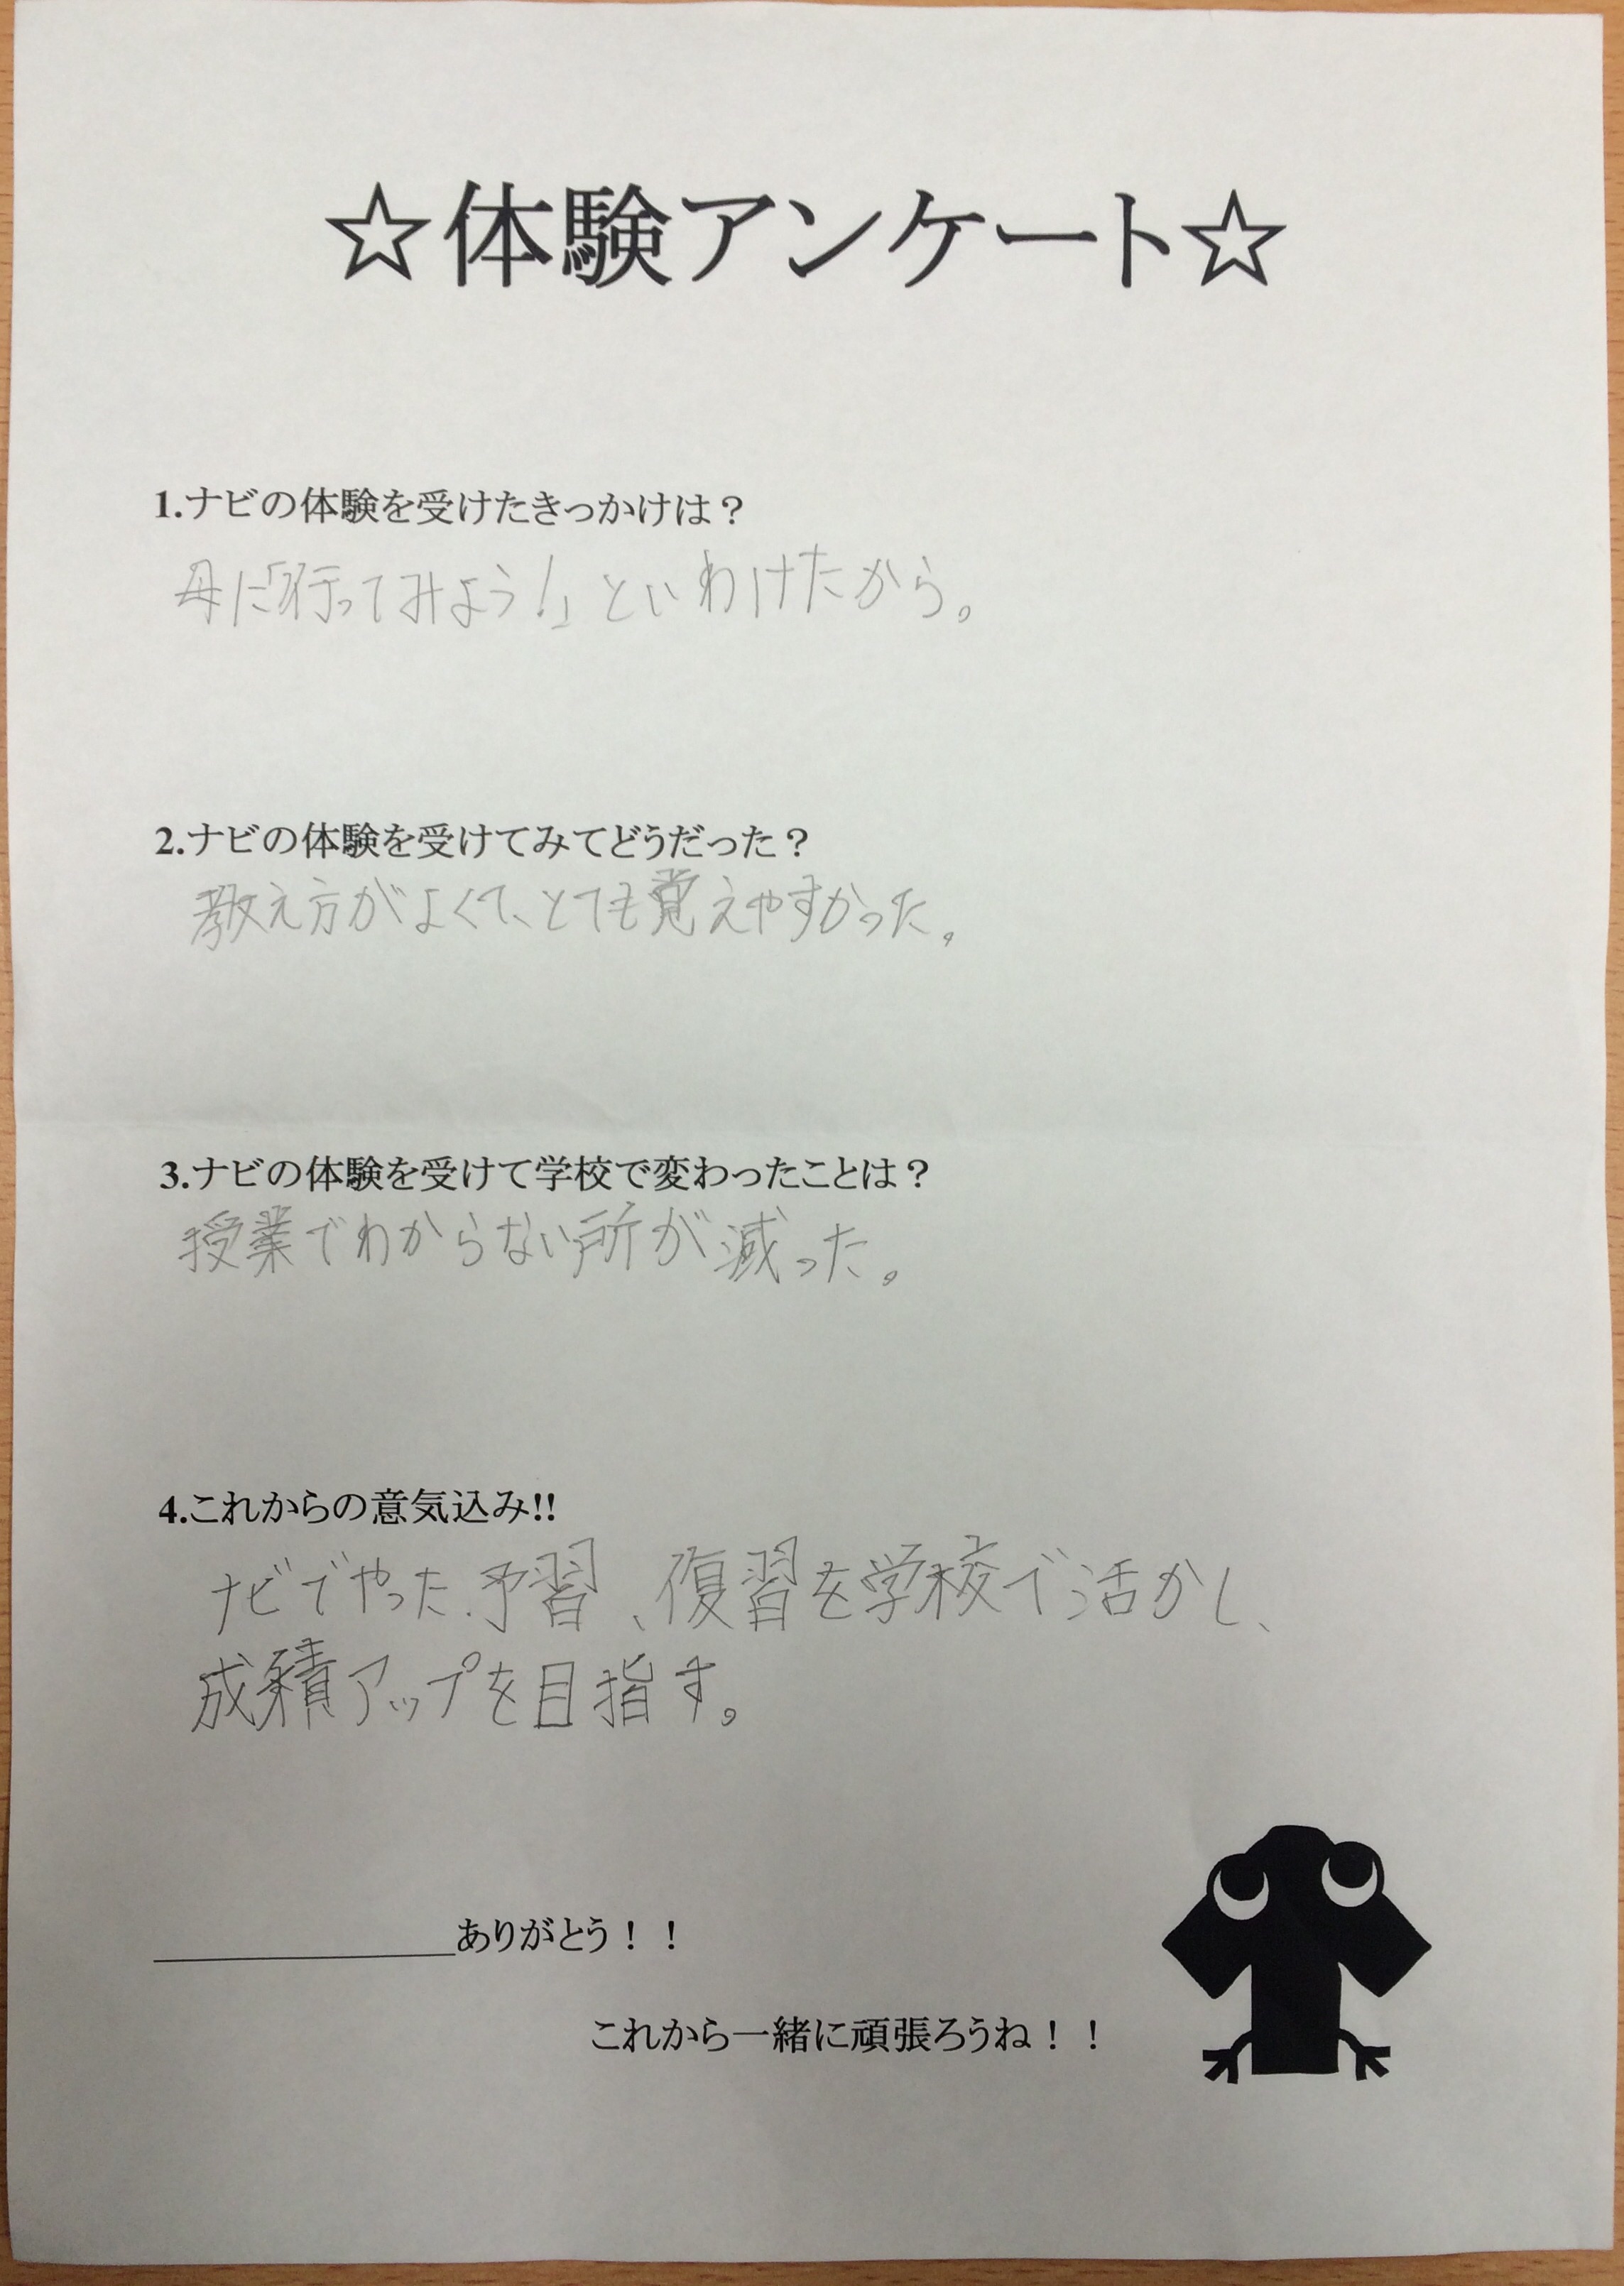 ☆体験アンケート☆
1.ナビの体験を受けたきっかけは？
母に「行ってみよう!」といわけたから。
2.ナビの体験を受けてみてどうだった？
教え方がよくて、とても覚えやすかった。
3.ナビの体験を受けて学校で変わったことは？
授業でわからない所が減った。
4.これからの意気込み!!
ナビでやった予習、復習を学校で活かし、
成績アップを目指す。
ありがとう！！
これから一緒に頑張ろうね！！